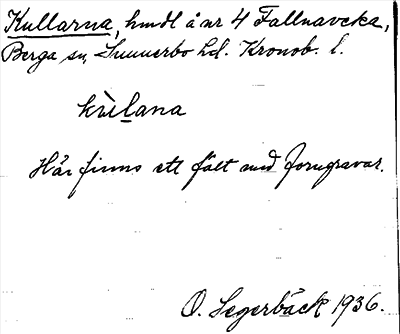 Kullarna, hmdl å nr 4 Fallnaveka,
Berga sn, Sunnerbo hd. Kronob. l.
kùlana
Här finns ett fält med forngravar.
O. Segerbäck 1936.